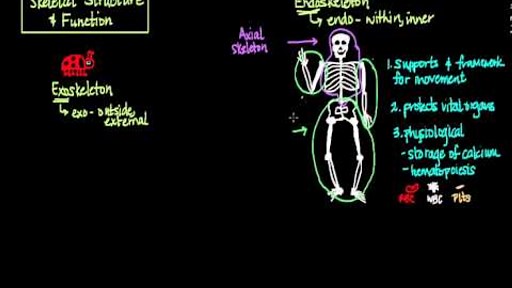 Skeletal Structure
& Function
Exoskeleton
↳ exo - outside,
external
Endoskeleton
↳ endo - within, inner
Axial
skeleton
1. supports & framework
for movement
2. protects vital organs
3. physiological
- storage of calcium
- hematopoiesis
RBC WBC Plts